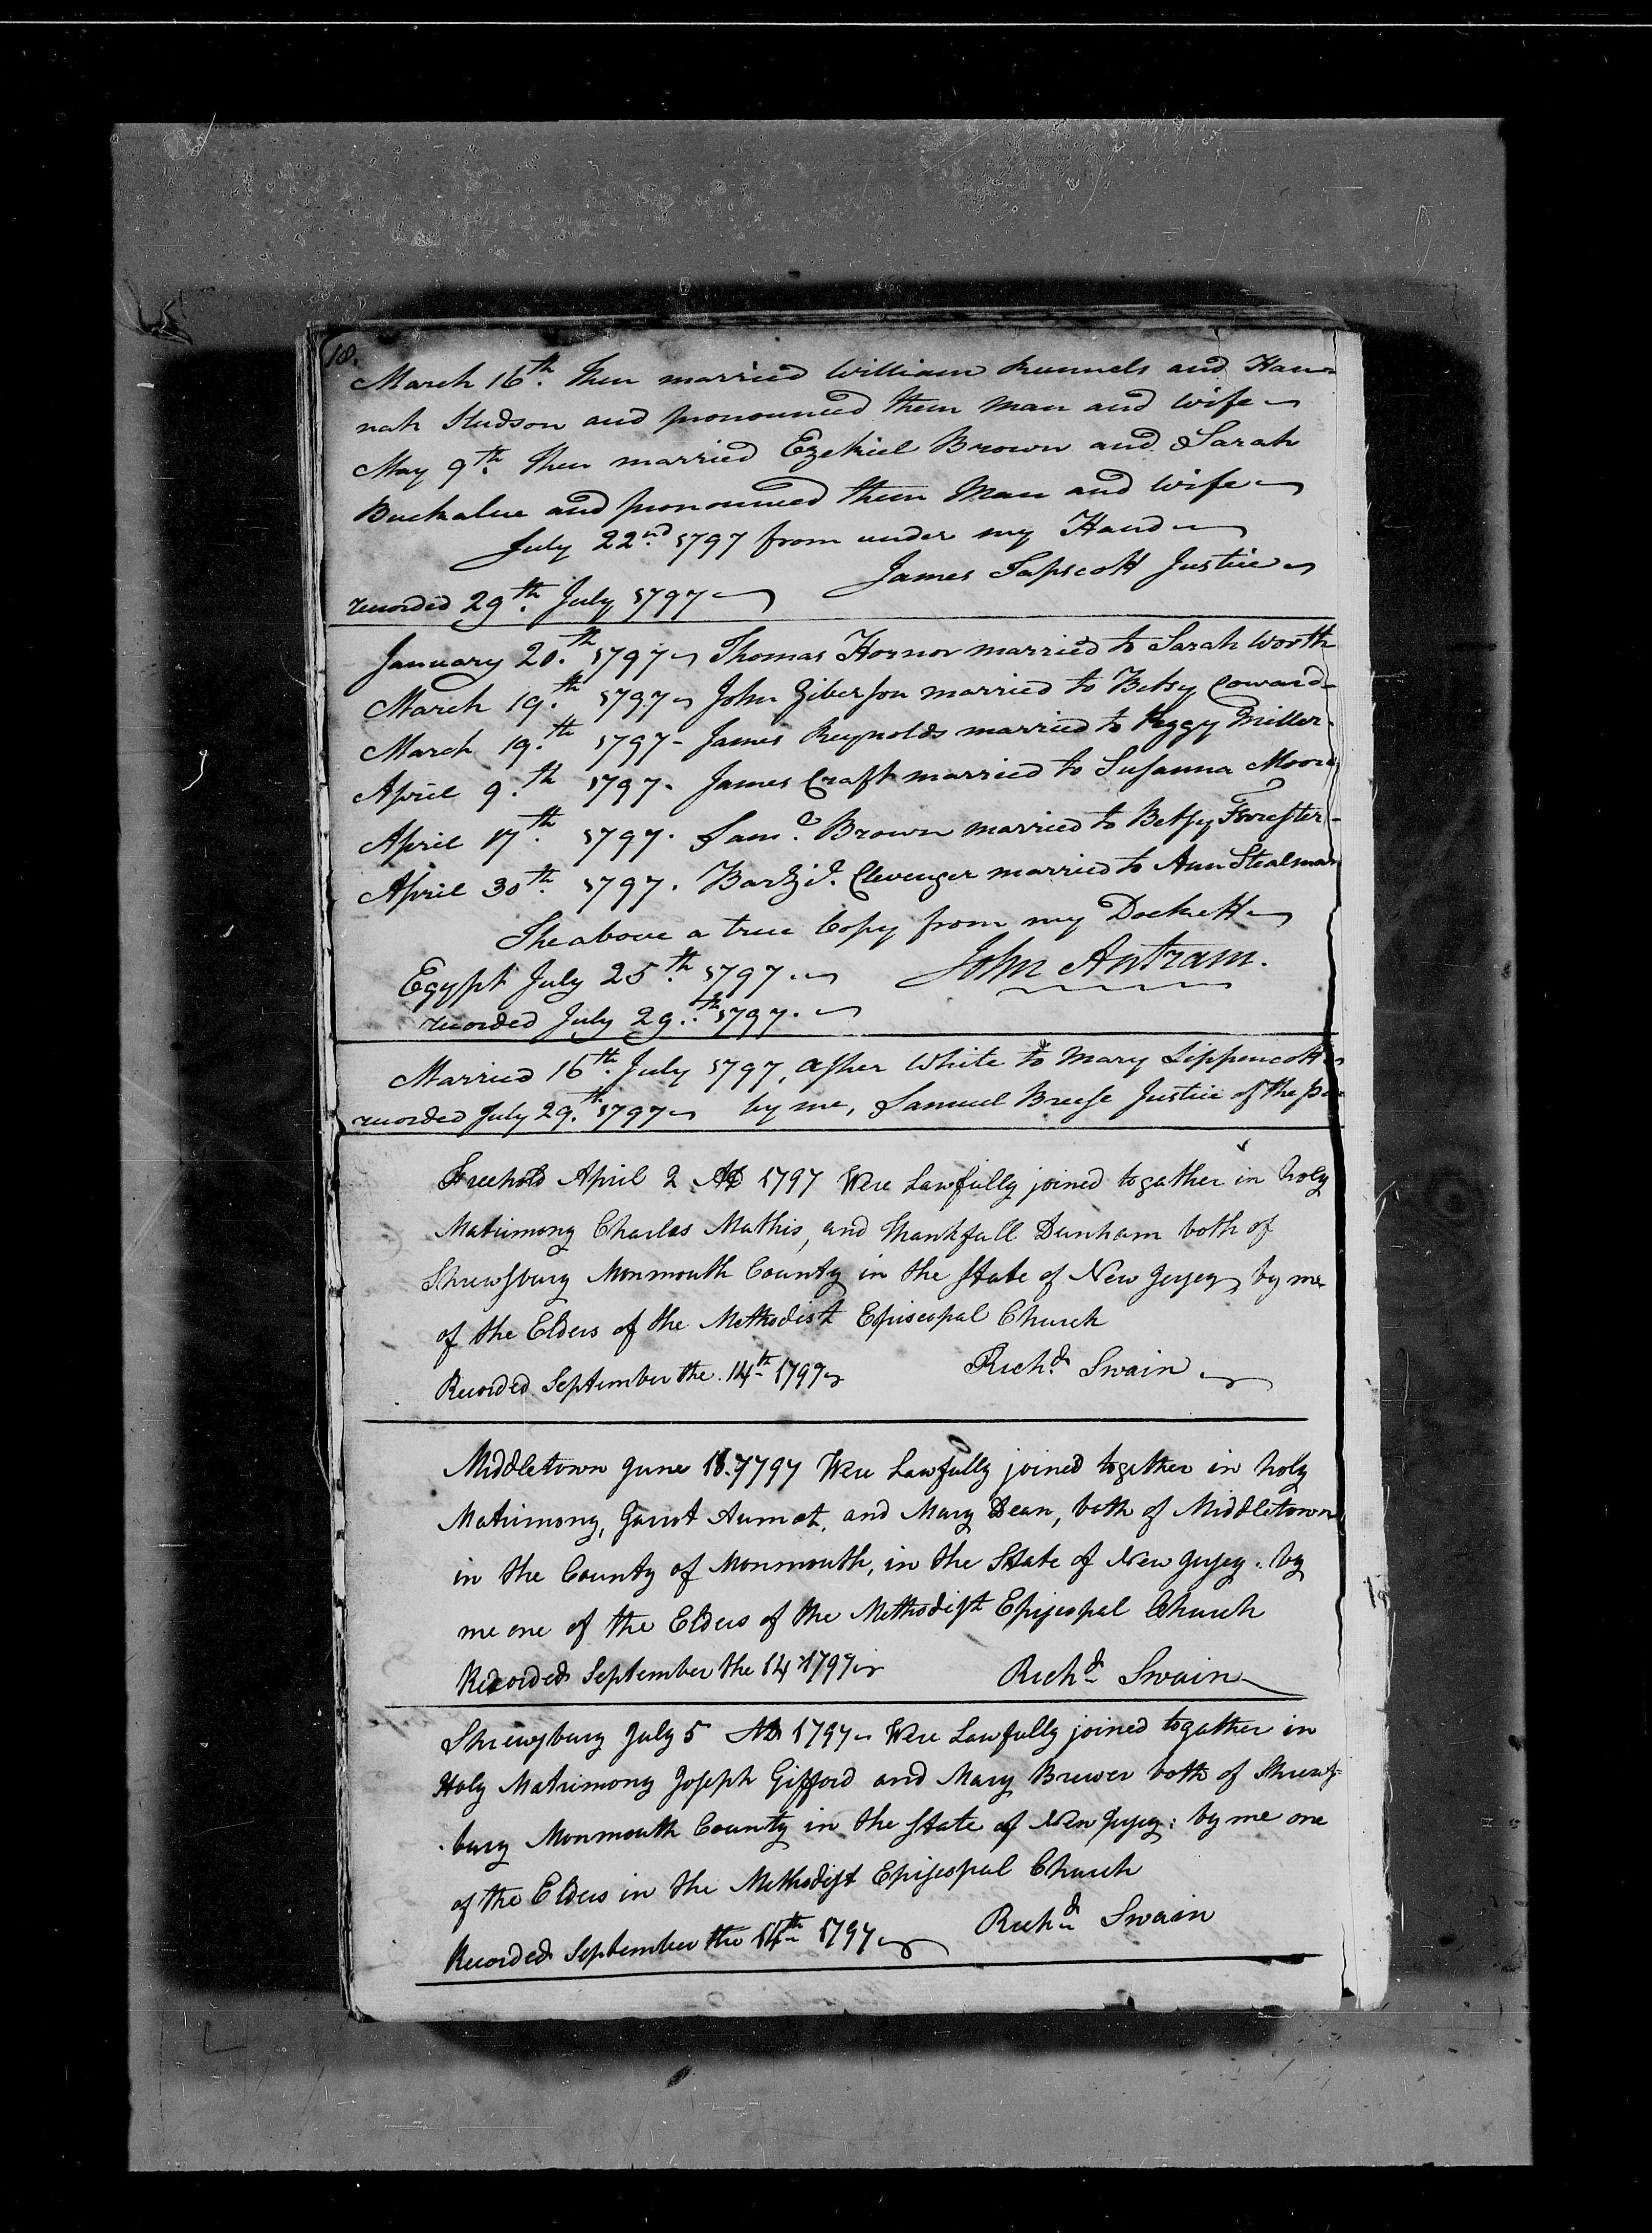 18.
March 16th. then married William Runnels and Han=
nah Hudson and pronounced them Man and Wife
May 9th. then married Ezekiel Brown and Sarah
Buckalue and pronounced them Man and Wife
July 22nd 1797 from under my Hand
James Tapscott Justice
recorded 29th. July 1797
January 20.th 1797 Thomas Hornor married to Sarah Worth
March 19.th 1797 John Giberson married to Betsy Coward
March 19.th 1797 - James Reynolds married to Peggy Miller
April 9.th 1797. James Craft married to Susanna Moore
April 17th. 1797. Saml. Brown married to Betsy Forrester
April 30th. 1797. Barzi. Clevenger married to Ann Stealman
The above a true Copy from my Dockett
Egypt July 25th. 1797. John Antram.
recorded July 29.th 1797.
Married 16th. July 1797, Asher White to Mary Lippencott
recorded July 29.th 1797 by me, Samuel Breese Justice of the
Freehold April 2 AD 1797 Were Lawfully joined togather in holy
Matrimony Charles Mathis, and Thankfull Dunham both of
Shrewsbury Monmouth County in the State of New Jersey by me
of the Elders of the Methodist Episcopal Church
Recorded September the 14th 1797 Richd. Swain
Middletown June 18. 1797 Were Lawfully joined together in holy
Matrimony, Garrot Aumat, and Mary Dean, both of Middletown
in the County of Monmouth, in the State of New Jersey. by
me one of the Elders of the Methodist Episcopal Church
Recorded September the 14 1797 Richd. Swain
Shrewsbury July 5 AD 1797 Were Lawfully joined togather in
Holy Matrimony Joseph Gifford and Mary Brewer both of Shrews=
bury Monmouth County in the State of New Jersey: by me one
of the Elders in the Methodist Episcopal Church
Recorded September the 14th 1797 Richd. Swain